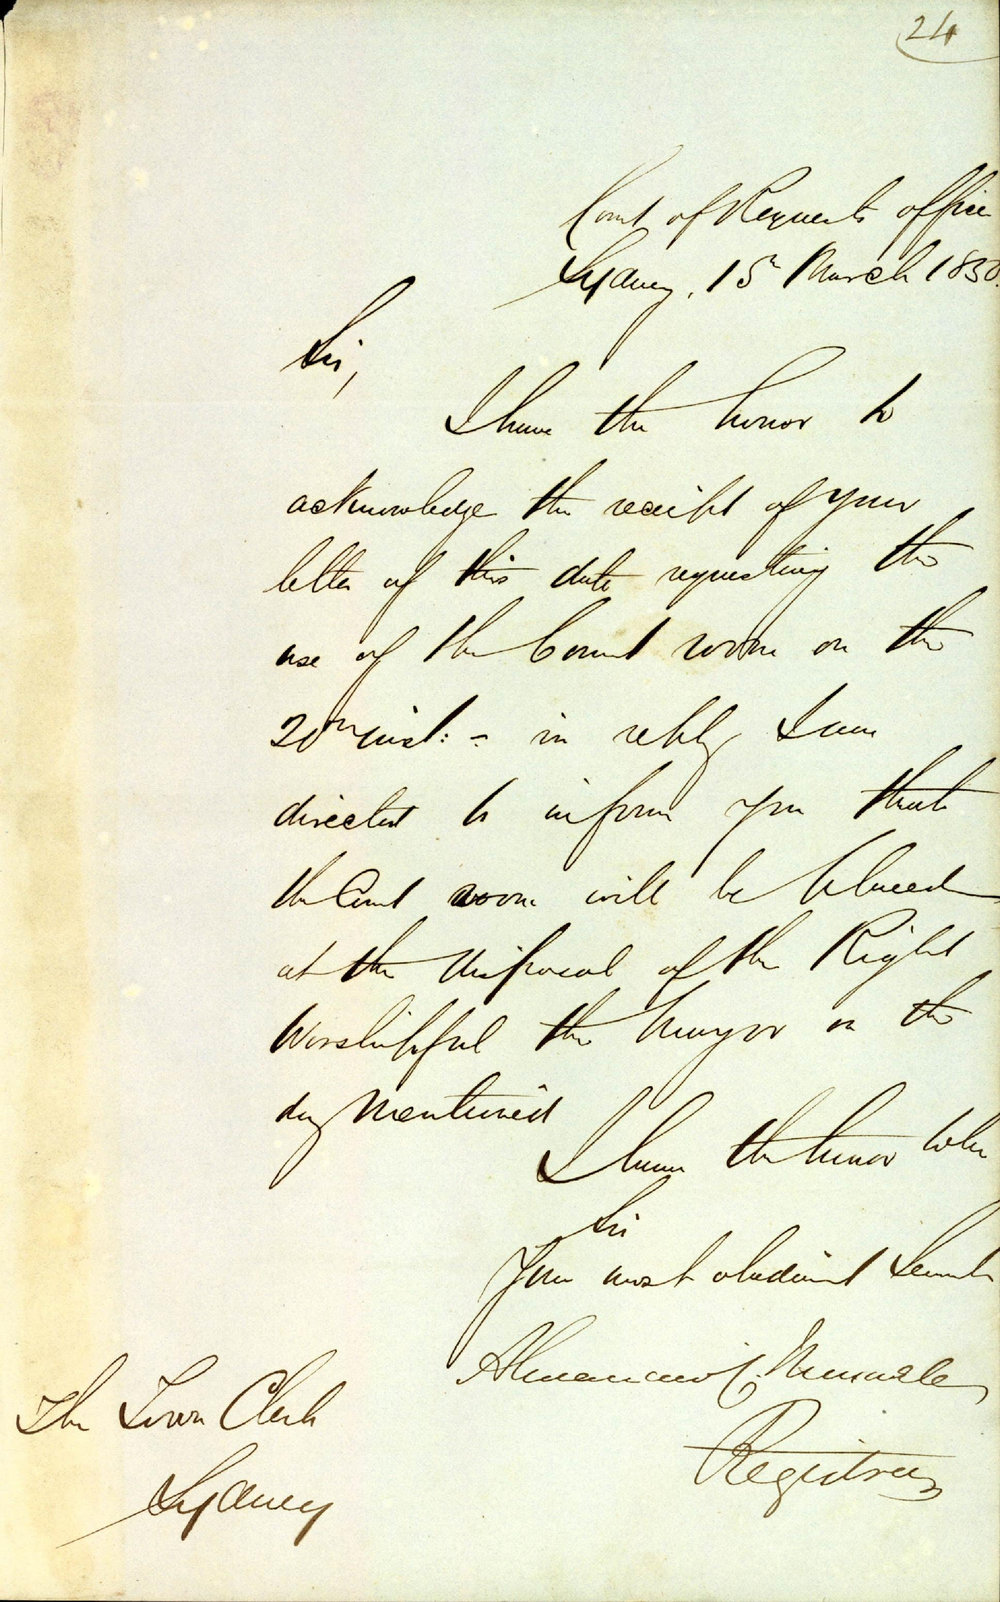 24
Court of Requests office
Sydney, 15th March 1850.
Sir,
I have the honor to
acknowledge the receipt of your
letter of this date requesting the
use of the Court room on the
20th inst: - in reply I am
directed to inform you that
the Court room will be placed
at the disposal of the Right
Worshipful the Mayor on the
day mentioned
I have the honor to be
Sir
Your most obedient Servant
Registrar
The Town Clerk
Sydney